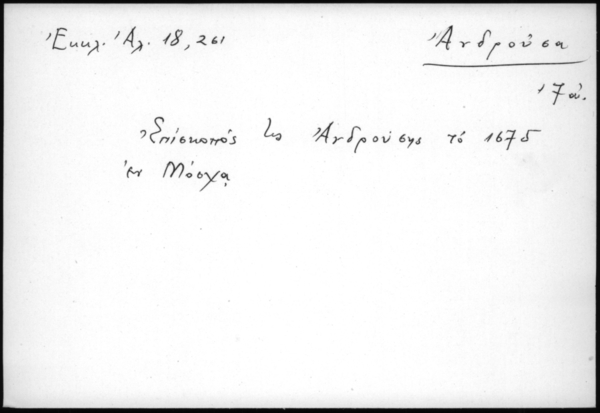 Ἐκκλ. Ἀλ. 18, 261
Ἀνδροῦσα
17 αἰ.
Ἐπίσκοπός τις Ἀνδρούσης τό 1675
ἐν Μόσχᾳ